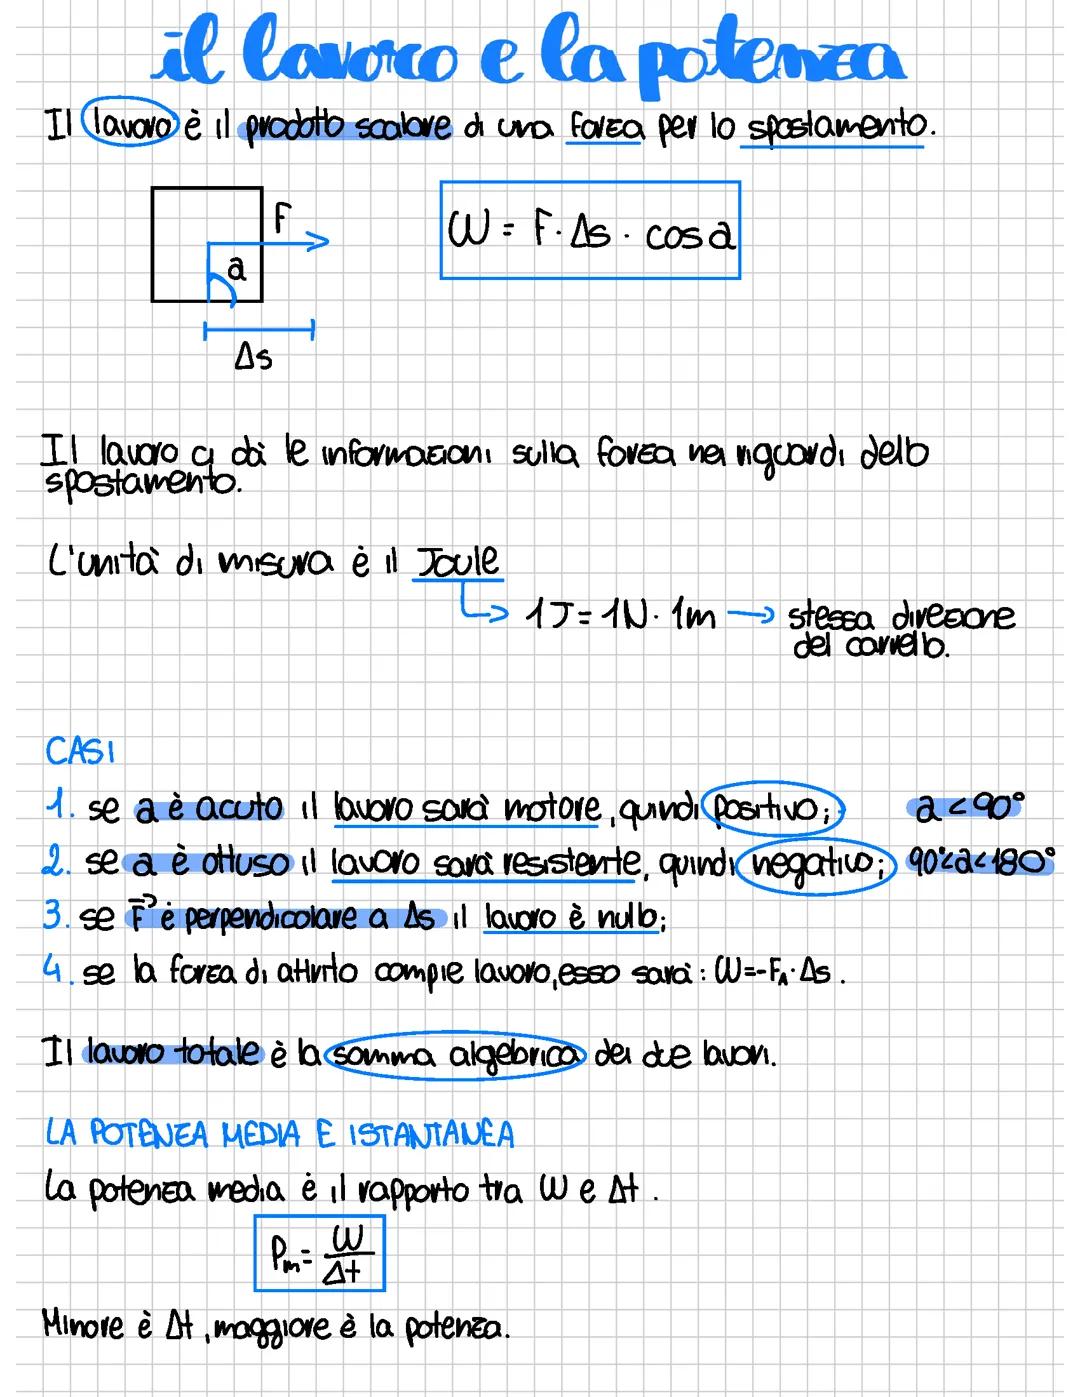 il lavoro e la potenza
Il lavoro è il prodotto scalare di una forza per lo spostamento.
F
W = F · Δs · cos a
a
Δs
Il lavoro ci dà le informazioni sulla forza nei riguardi dello
spostamento.
L'unità di misura è il Joule
1J = 1N · 1m → stessa direzione
del carrello.
CASI
1. se a è acuto il lavoro sarà motore, quindi positivo; a < 90°
2. se a è ottuso il lavoro sarà resistente, quindi negativo; 90°<a<180°
3. se F⃗ è perpendicolare a Δs il lavoro è nullo;
4. se la forza di attrito compie lavoro, esso sarà: W=-F_A·Δs.
Il lavoro totale è la somma algebrica dei due lavori.
LA POTENZA MEDIA E ISTANTANEA
La potenza media è il rapporto tra W e Δt.
Pm = W/Δt
Minore è Δt, maggiore è la potenza.